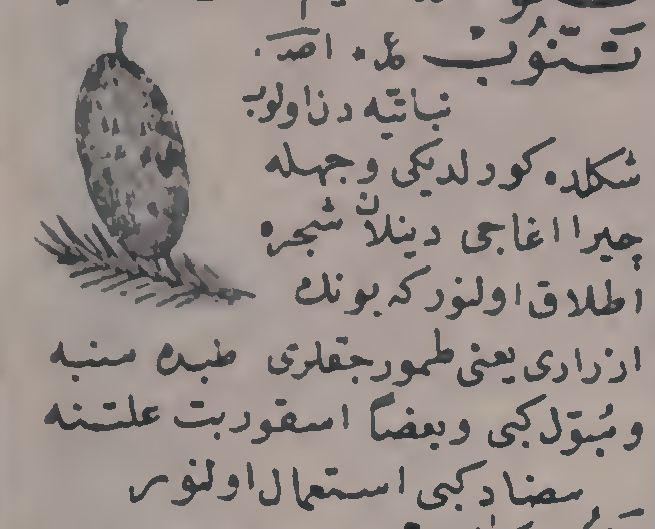 تنّوب ع. اصـ.
نباتیه دن اولوب
شكلده كورلديكی وجهله
چیرا اغاجی دینلان شجره
اطلاق اولنور كه بونك
ازراری یعنی طمورجقلری طبده منبه
ومُبوّل كبی وبعضاً اسقوربت علتنه
مضاد كبی استعمال اولنور